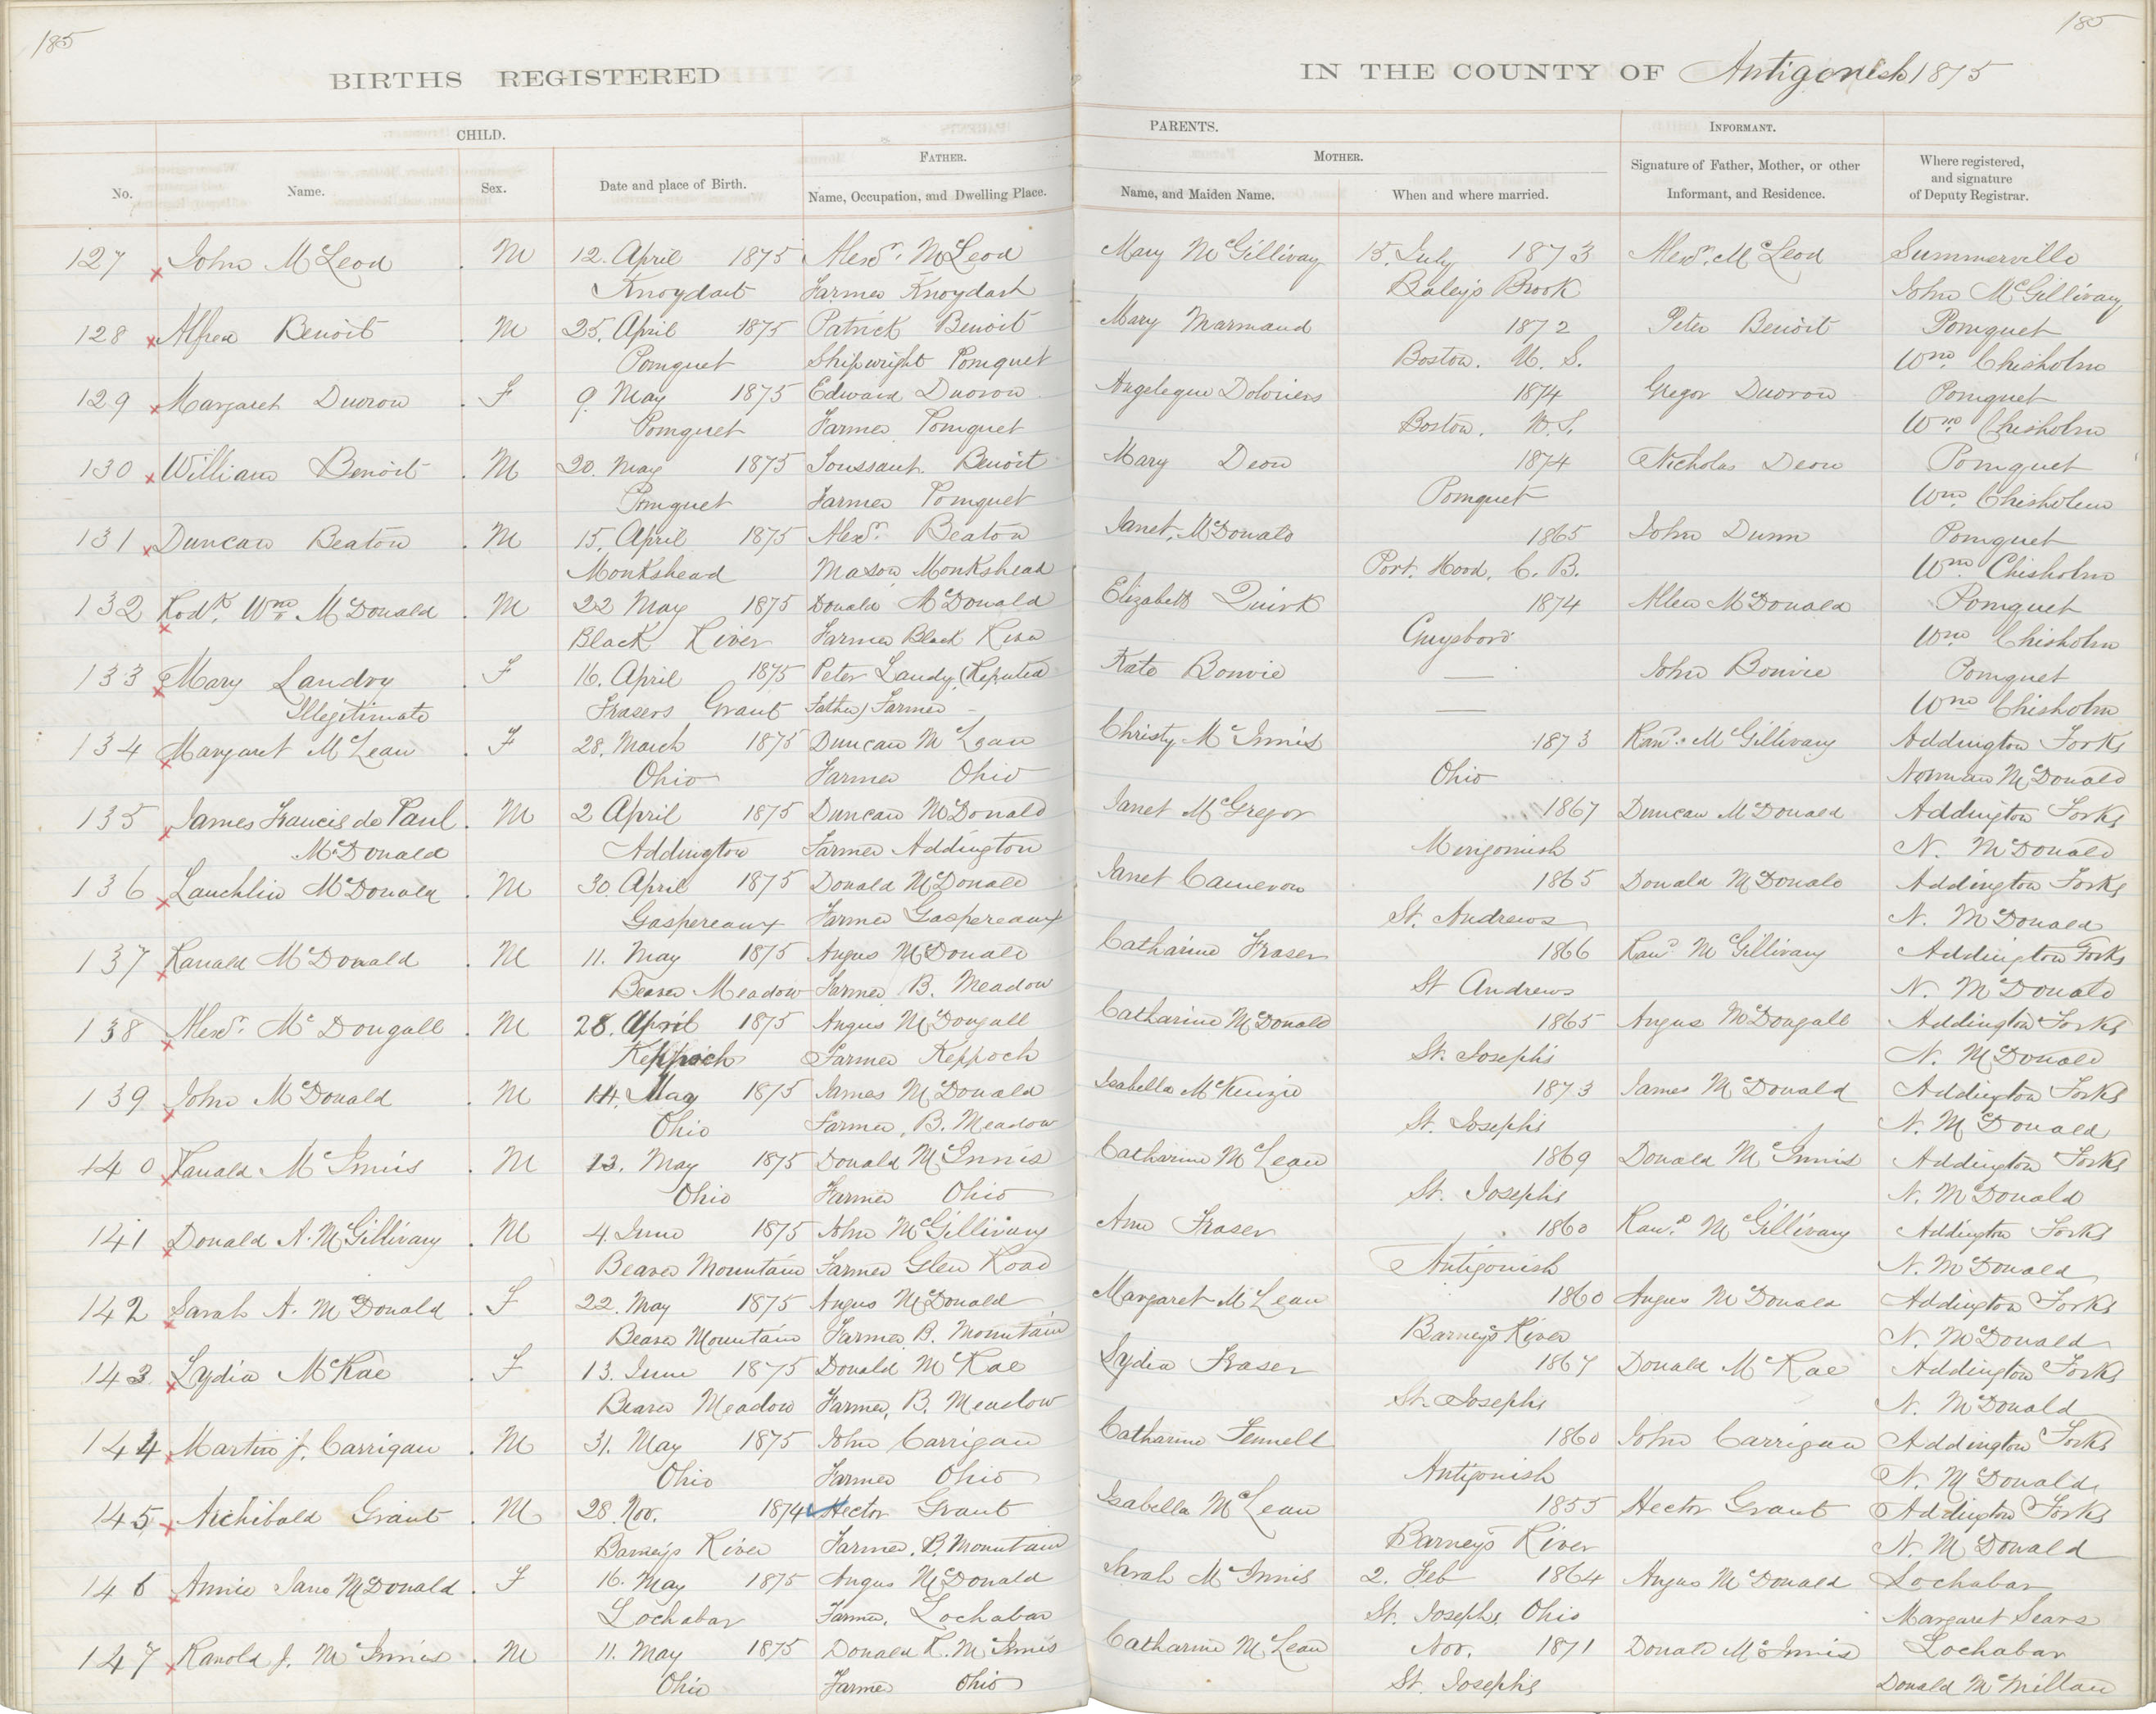 185
185
BIRTHS REGISTERED IN THE COUNTY OF Antigonish 1875
CHILD. PARENTS. INFORMANT.
FATHER. MOTHER.
No. Name. Sex. Date and place of Birth. Name, Occupation, and Dwelling Place. Name, and Maiden Name. When and where married. Signature of Father, Mother, or other Informant, and Residence. Where registered, and signature of Deputy Registrar.
127 John McLeod M 12. April 1875 Alexr. McLeod Mary McGillivay 15. July 1873 Alexr. McLeod Summerville
Knoydart Farmer Knoydart Baley's Brook John McGillivay
128 Alfred Benoit M 25. April 1875 Patrick Benoit Mary Marmaud 1872 Peter Benoit Pomquet
Pomquet Shipwright Pomquet Boston. U. S. Wm. Chisholm
129 Margaret Duorow F 9. May 1875 Edward Duorow 1874 Gregor Duorow Pomquet
Pomquet Farmer Pomquet Boston. U.S. Wm. Chisholm
130 William Benoit M 20. May 1875 Toussaint Benoit Mary Deon 1874 Nicholas Deon Pomquet
Pomquet Farmer Pomquet Pomquet Wm. Chisholm
131 Duncan Beaton M 15. April 1875 Alexr. Beaton Janet McDonald 1865 John Dunn Pomquet
Monkshead Mason Monkshead Port. Hood, C. B. Wm. Chisholm
132 Rodk. Wm. McDonald M 22 May 1875 Donald McDonald Elizabeth Quirk 1874 Allen McDonald Pomquet
Black River Farmer Black River Guysboro Wm. Chisholm
133 Mary Landry F 16. April 1875 Peter Landry (Reputed Kate Bonvie — John Bonvie Pomquet
Illegitimate Frasers Grant Father) Farmer — — Wm. Chisholm
134 Margaret McLean F 28. March 1875 Duncan McLean Christy McInnis 1873 Rand. McGillivray Addington Forks
Ohio Farmer Ohio Ohio Norman McDonald
135 James Francis de Paul M 2 April 1875 Duncan McDonald Janet McGregor 1867 Duncan McDonald Addington Forks
McDonald Addington Farmer Addington Merigomish N. McDonald
136 Lauchlin McDonald M 30 April 1875 Donald McDonald Janet Cameron 1865 Donald McDonald Addington Forks
Gaspereaux Farmer Gaspereaux St. Andrews N. McDonald
137 Ranald McDonald M 11. May 1875 Angus McDonald Catharine Fraser 1866 Rand. McGillivray Addington Forks
Beaver Meadow Farmer B. Meadow St Andrews N. McDonald
138 Alexr. McDougall M 28. April 1875 Angus McDougall Catharine McDonald 1865 Angus McDougall Addington Forks
Keppoch Farmer Keppoch St. Josephs N. McDonald
139 John McDonald M 14. May 1875 James McDonald Isabella McKenzie 1873 James McDonald Addington Forks
Ohio Farmer, B. Meadow St. Josephs N. McDonald
140 Ranald McInnis M 13. May 1875 Donald McInnis Catharine McLean 1869 Donald McInnis Addington Forks
Ohio Farmer Ohio St. Josephs N. McDonald
141 Donald A. McGillivray M 4. June 1875 John McGillivray Ann Fraser 1860 Rand. McGillivray Addington Forks
Beaver Mountain Farmer Glen Road Antigonish N. McDonald
142 Sarah A. McDonald F 22. May 1875 Angus McDonald Margaret McLean 1860 Angus McDonald Addington Forks
Beaver Mountain Farmer B. Mountain Barneys River N. McDonald
143 Lydia McRae F 13. June 1875 Donald McRae Lydia Fraser 1867 Donald McRae Addington Forks
Beaver Meadow Farmer, B. Meadow St. Josephs N. McDonald
144 Martin J. Carrigan M 31. May 1875 John Carrigan Catharine Fennell 1860 John Carrigan Addington Forks
Ohio Farmer Ohio Antigonish N. McDonald
145 Archibald Grant M 28. Nov. 1874 Hector Grant Isabella McLean 1855 Hector Grant Addington Forks
Barneys River Farmer, B. Mountain Barneys River N. McDonald
146 Annie Jane McDonald F 16. May 1875 Angus McDonald Sarah McInnis 2. Feb 1864 Angus McDonald Lochabar
Lochabar Farmer, Lochabar St. Josephs, Ohio Margaret Sears
147 Ranold J. McInnis M 11. May 1875 Donald R. McInnis Catharine McLean Nov. 1871 Donald McInnis Lochabar
Ohio Farmer Ohio St. Josephs Donald McMillan